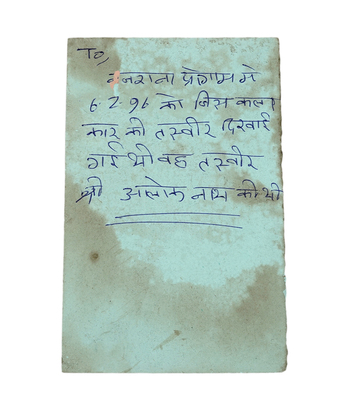 To,
नजराना प्रोग्राम मे
6.2.96 को जिस कला
कार की तस्वीर दिखाई
गई थी वह तस्वीर
श्री आलोक नाथ की थी